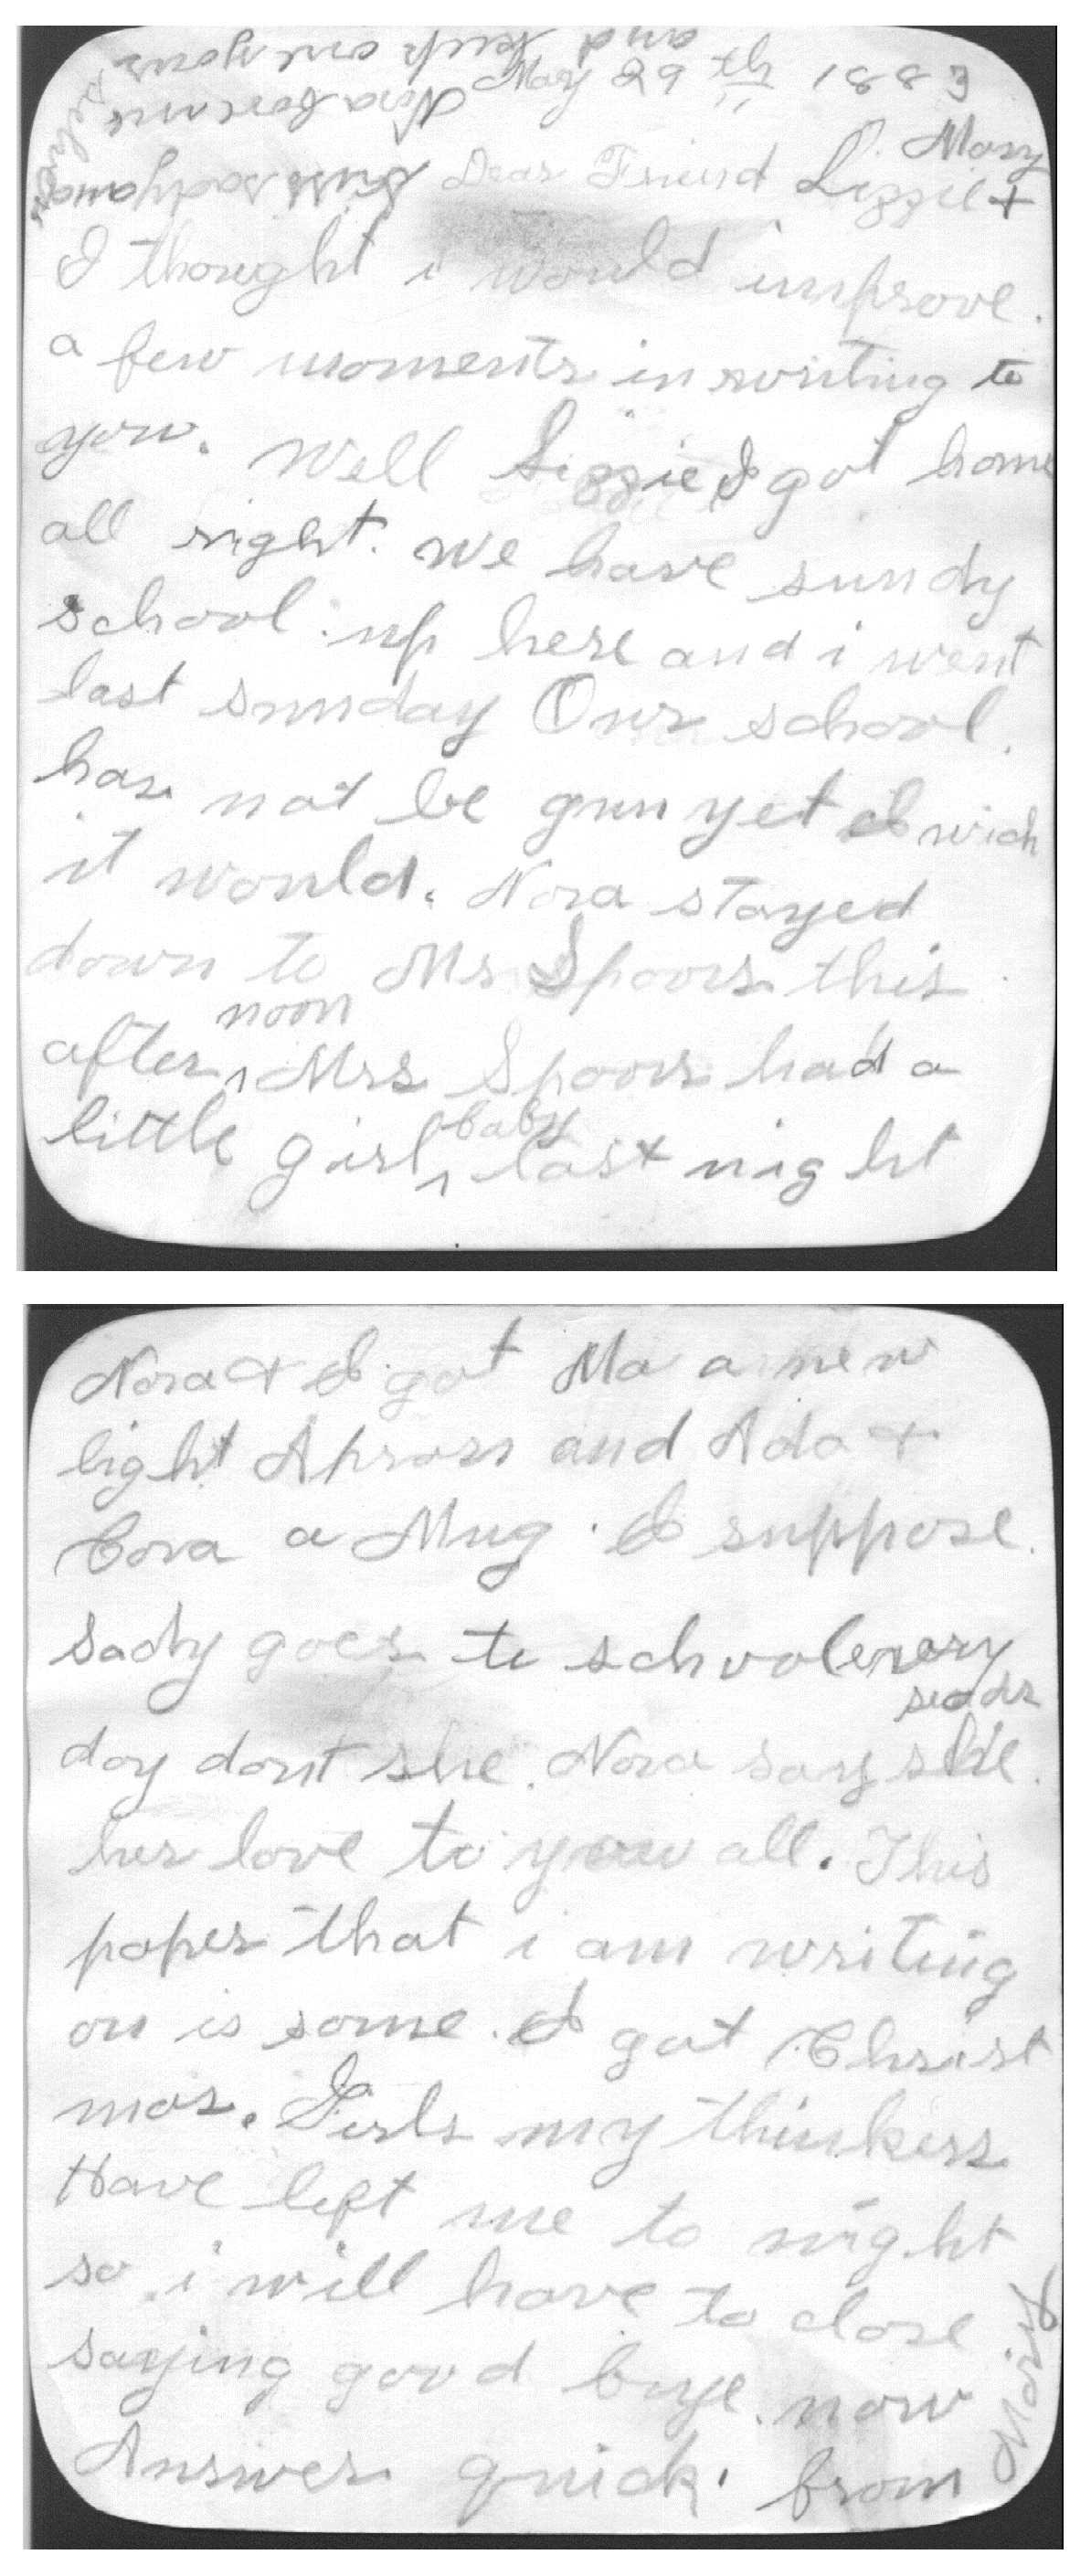 May 29th 1883
Dear Friend Lizzie & Mary
I thought i would improve
a few moments in writing to
you. Well Lizzie I got home
all right. We have sundy
school up here and i went
last sunday Our school
has not be gun yet I wich
it would. Nora stayed
down to Ms Spoors this
after noon Mrs Spoors had a
little girl baby last night
Nora & I got Ma a new
light Apron and Ada &
Cora a Mug. I suppose
Sady goes to school evrery
day dont she. Nora says she sends
her love to you all. This
paper that i am writing
on is some I got Christ
mas. Girls my thinkers
Have left me to night
so i will have to close
saying good buye now
Answer quick. from
Mary
Kiss sady
Nora for me
and keep one